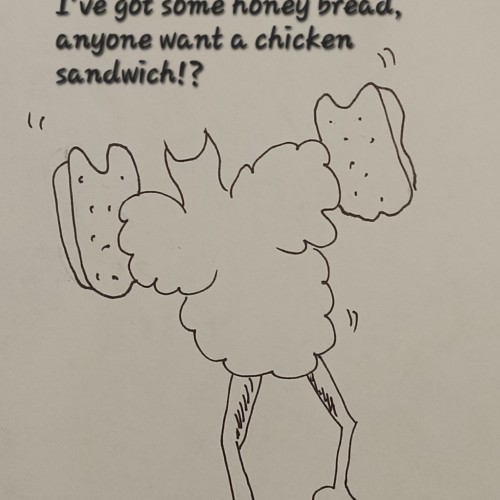 I've got some honey bread,
anyone want a chicken
sandwich!?